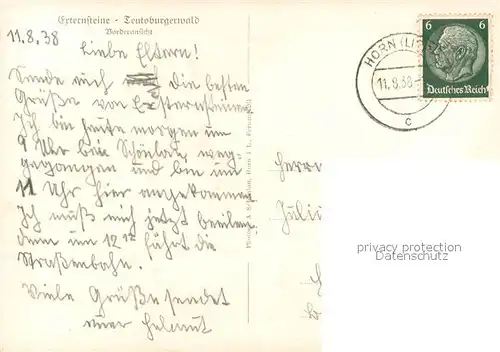 Externsteine - Teutoburgerwald
Vorderansicht
11.8.38
Liebe Eltern!
Sende euch die besten
Grüße von Externsteine.
Ich bin heute morgen um
9 Uhr bei weg-
gegangen und bin um
11 Uhr hier angekommen.
Ich muß mich jetzt beeilen
denn um 12 fährt die
Straßenbahn.
Viele Grüße sendet
euer Helmut
HORN (LIPPE)
11.8.38
c
6 6
Deutsches Reich
Herrn
Juli
privacy protection
Datenschutz